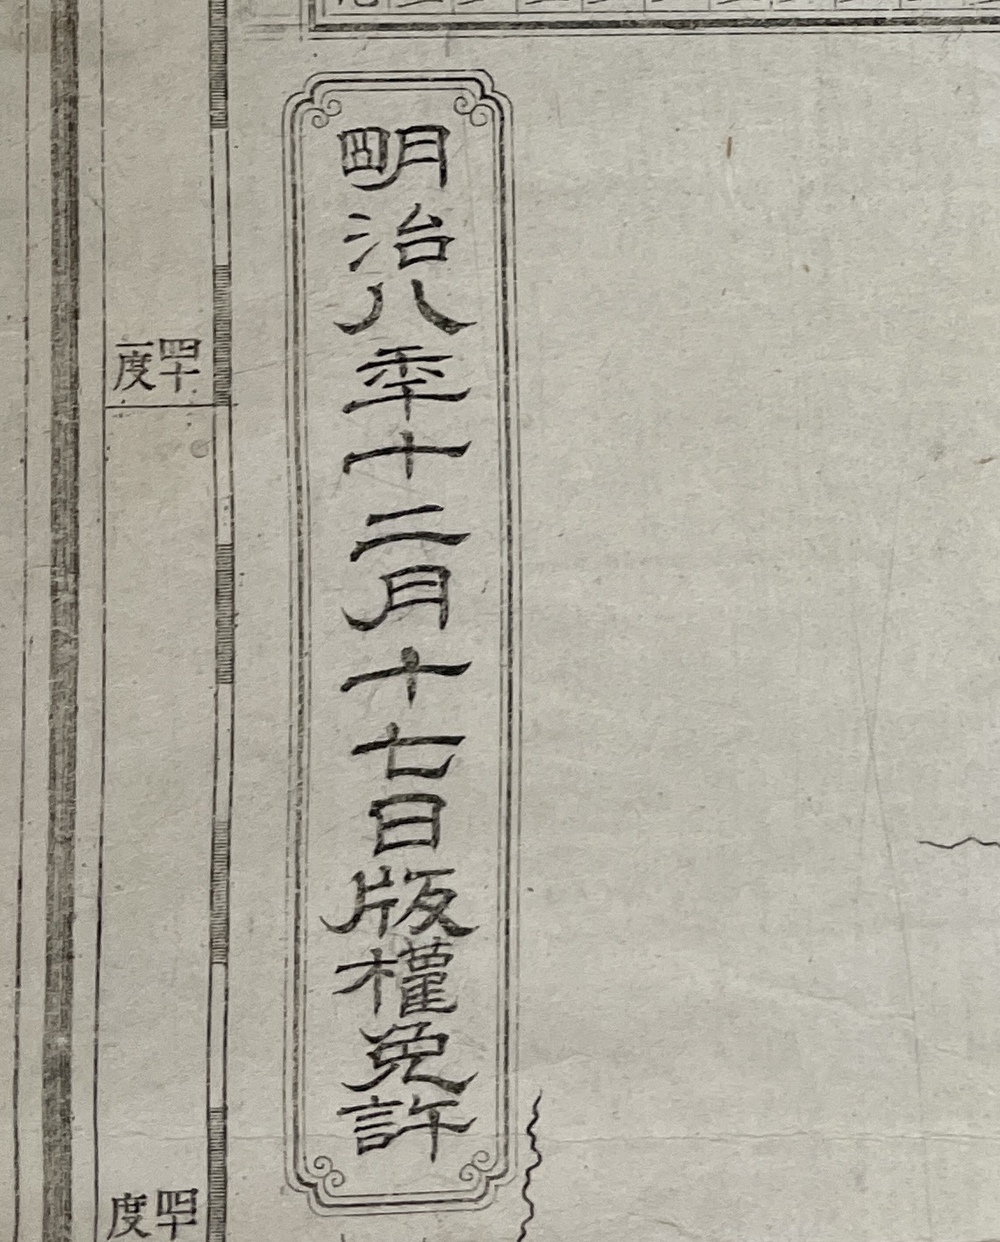 明治八年十二月十七日版權免許
四十一度
四十度